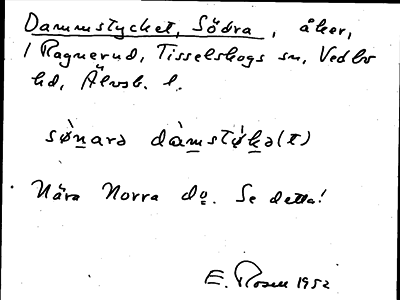 Dammstycket, Södra, åker,
/ Ragnerud, Tisselskogs sn, Vedbo
hd, Älvsb. l.
sø̀nara dàmstỳka(t)
Nära Norra do. Se detta!
E. Rosell 1952